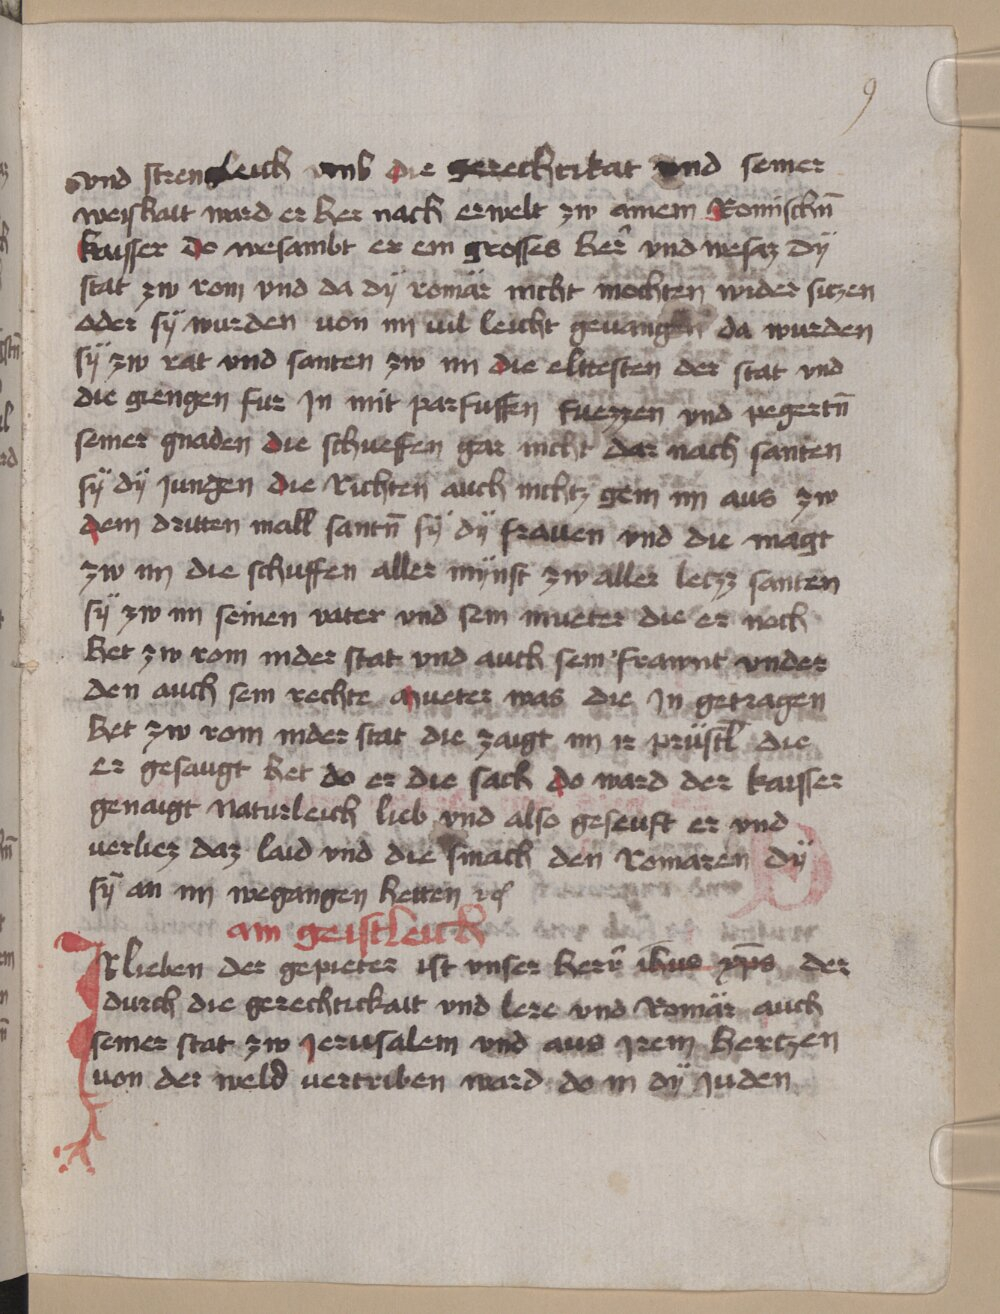 9
vnd strengleich vmb die gerechtikat vnd seiner
weiskait ward er her nach erwelt zw ainem Romischn̄
kaisser do wesambt er ein grosses her̄ vnd wesaz dÿ
stat zw rom vnd da dÿ römär nicht mochten wider sitzen
oder sÿ wurden von im vil leicht geuangen da wurden
sÿ zw rat vnd santen zw im die elttesten der stat vnd
die giengen fur in mit parfussen fuezzen vnd pegertn̄
seiner gnaden die schueffen gar nicht dar nach santen
sÿ dÿ iungen die Richten auch nichtz gein im aus zw
dem dritten mall santn̄ sÿ dÿ frauen vnd die magt
zw im die schuffen aller mÿnst zw aller letzz santen
sÿ zw im seinen vater vnd sein mueter die er noch
het zw rom inder stat vnd auch sein frawnt vnder
den auch sein rechte mueter was die in getragen
het zw rom inder stat die zaigt im ir prüstl die
er gesaugt het do er die sach do ward der kaisser
genaigt naturleich lieb vnd also geseuft er vnd
verliez daz laid vnd die smach den Romaren dÿ
sÿ an im wegangen hetten
ain geistleich
IR lieben der gepieter ist vnser herr̄ ih̄us xp̄s der
durch die gerechtickait vnd lere vnd Romär auch
seiner stat zw Jerusalem vnd aus irem hertzen
von der weld vertriben ward do in dÿ iuden